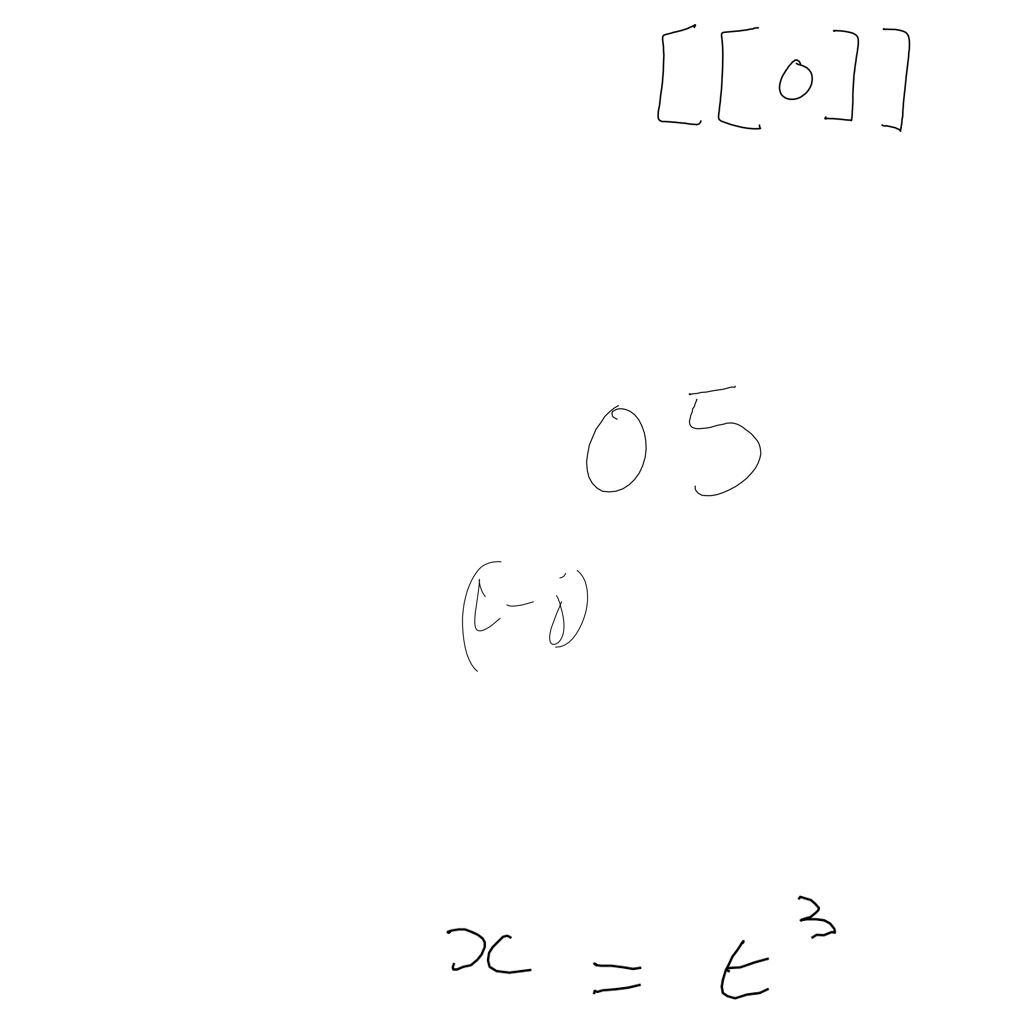 [[0]]
05
(i-j)
x = t³